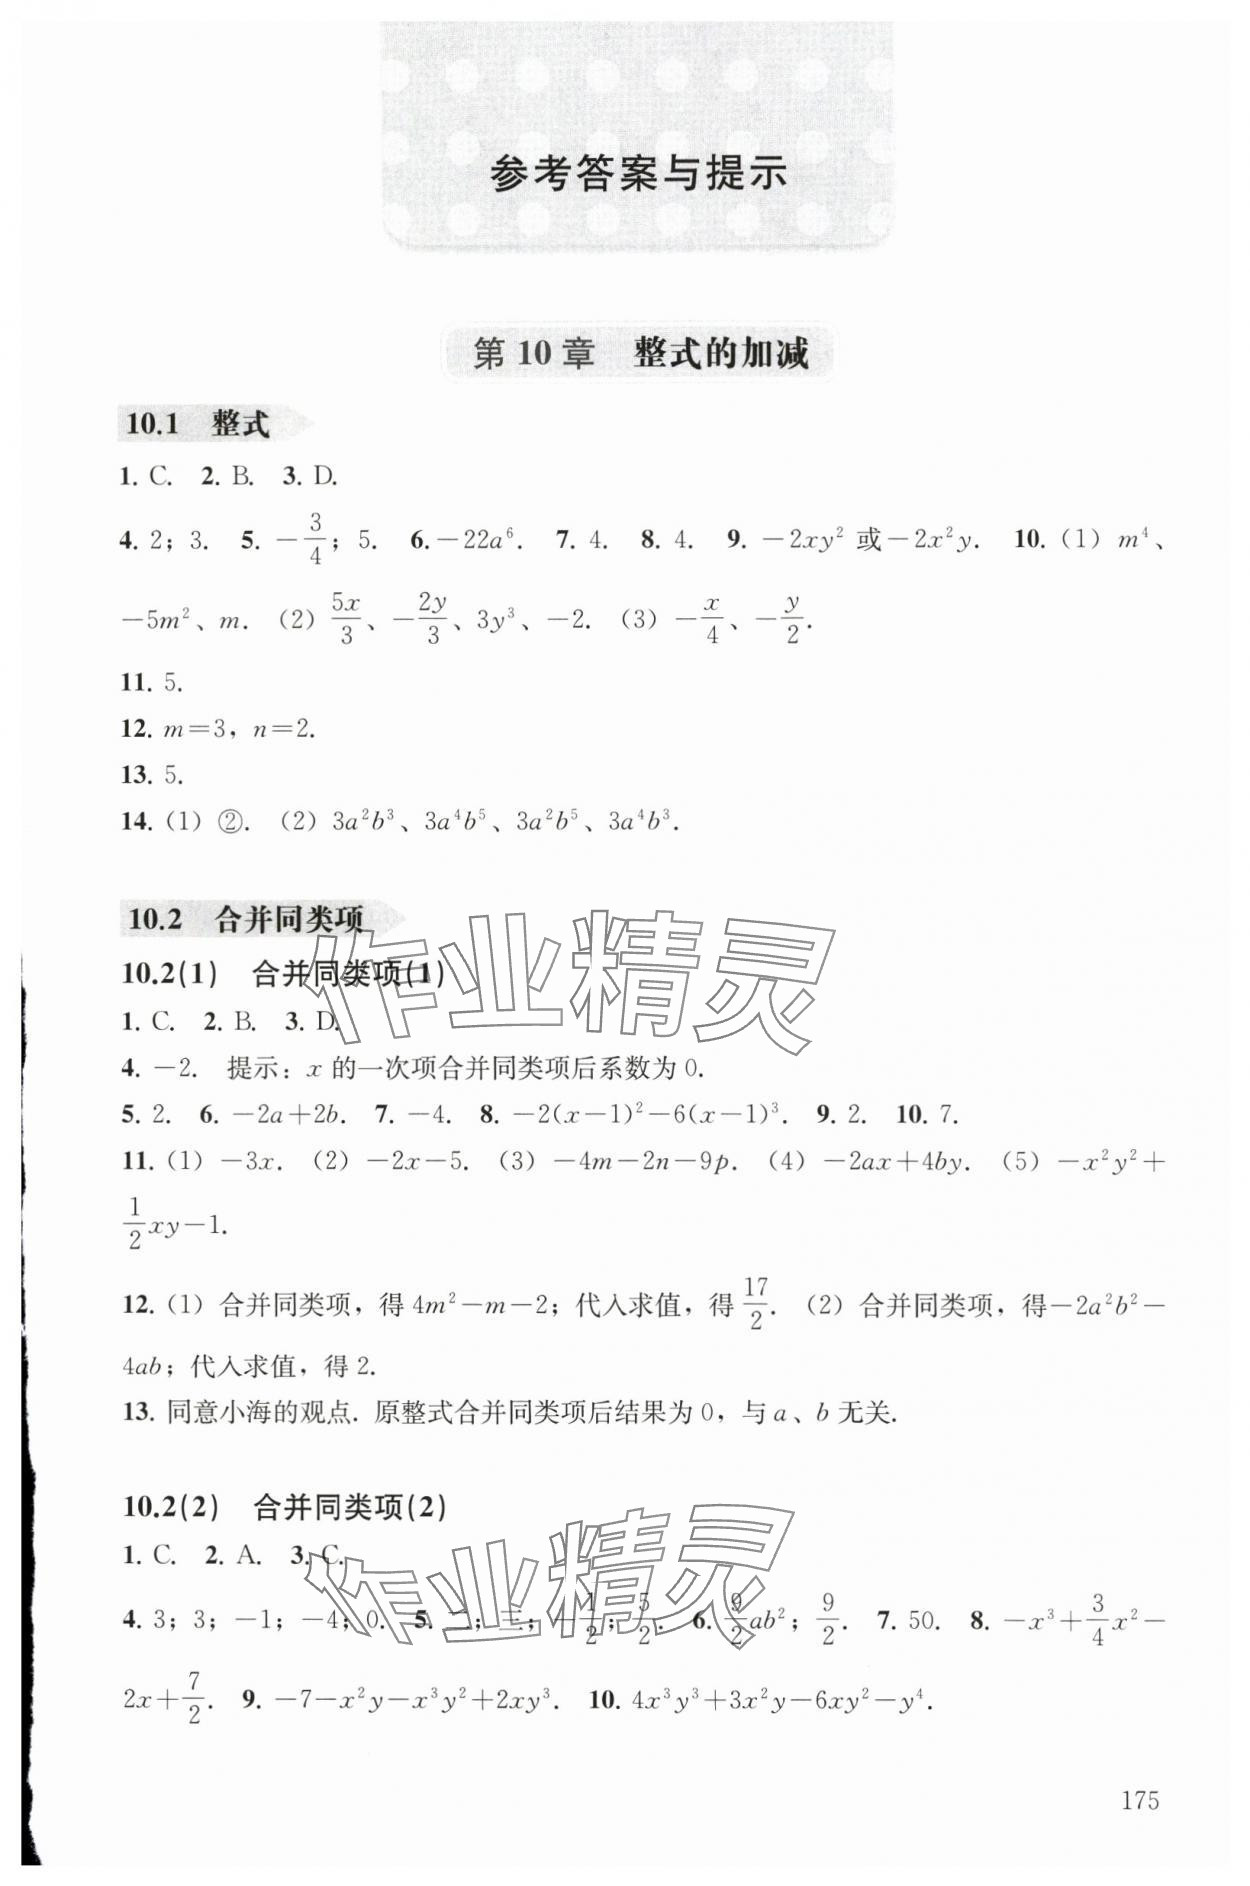 参考答案与提示
第 10 章 整式的加减
10.1 整式
1. C. 2. B. 3. D.
4. 2；3. 5. −3/4；5. 6. −22a⁶. 7. 4. 8. 4. 9. −2xy² 或 −2x²y. 10. (1) m⁴、
−5m²、m. (2) 5x/3、−2y/3、3y³、−2. (3) −x/4、−y/2.
11. 5.
12. m=3，n=2.
13. 5.
14. (1) ②. (2) 3a²b³、3a⁴b⁵、3a²b⁵、3a⁴b³.
10.2 合并同类项
10.2(1) 合并同类项(1)
1. C. 2. B. 3. D.
4. −2. 提示：x 的一次项合并同类项后系数为 0.
5. 2. 6. −2a+2b. 7. −4. 8. −2(x−1)²−6(x−1)³. 9. 2. 10. 7.
11. (1) −3x. (2) −2x−5. (3) −4m−2n−9p. (4) −2ax+4by. (5) −x²y²+
1/2xy−1.
12. (1) 合并同类项，得 4m²−m−2；代入求值，得 17/2. (2) 合并同类项，得−2a²b²−
4ab；代入求值，得 2.
13. 同意小海的观点. 原整式合并同类项后结果为 0，与 a、b 无关.
10.2(2) 合并同类项(2)
1. C. 2. A. 3. C.
4. 3；3；−1；−4；0. 5. 二；三；−1/2；5/2. 6. 9/2ab²；9/2. 7. 50. 8. −x³+3/4x²−
2x+7/2. 9. −7−x²y−x³y²+2xy³. 10. 4x³y³+3x²y−6xy²−y⁴.
175
作业精灵
作业精灵